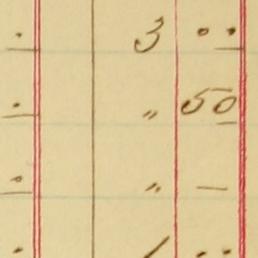 3 ..
" 50
" —